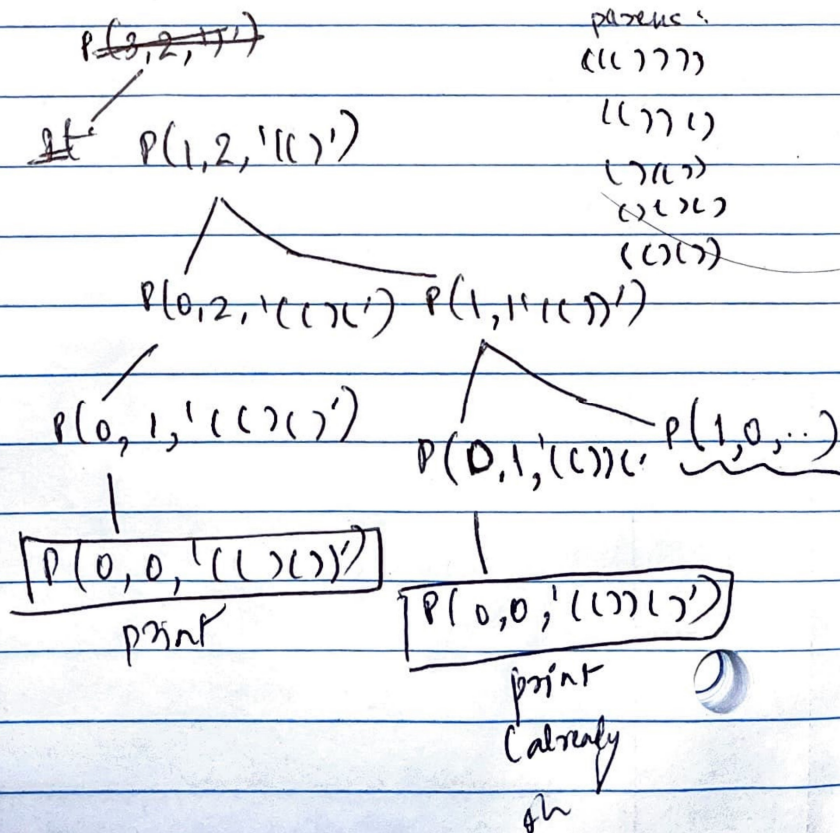 P(3,2,')')
parens:
((()))
(())()
()(())
()()()
(()())
P(1,2,'(()')
P(0,2,'(()(') P(1,1'(())')
P(0,1,'(()()')
P(0,1,'(())('
P(1,0,..)
P(0,0,'(()())')
P(0,0,'(())()')
print
print
(already